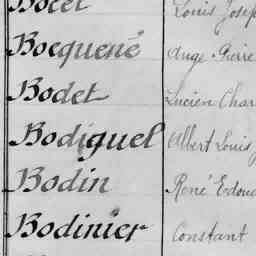 Bocet Louis Josep
Bocquené Ange Pierre
Bodet Lucien Char
Bodiguel Albert Louis J
Bodin René Edoua
Bodinier Constant